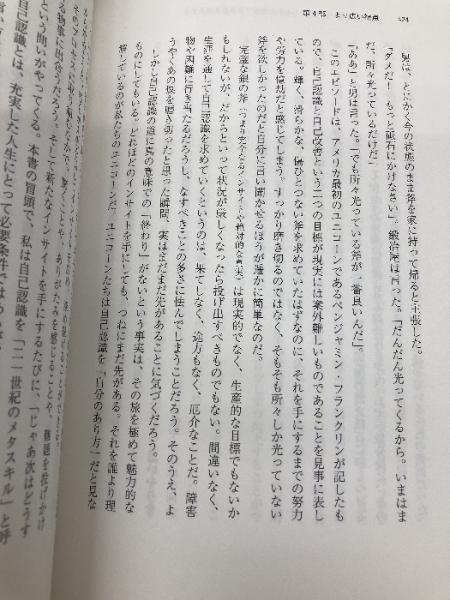 第4部 より広い視点 424
男は、とにかく今の状態のまま斧を家に持って帰ると主張した。
「ダメだ！もっと砥石にかけなさい」。鍛冶屋は言った。「だんだん光ってくるから。いまはま
だ、所々光っているだけだ」
「ああ」と男は言った。「でも所々光っている斧が、一番良いんだ」。
このエピソードは、アメリカ最初のユニコーンであるベンジャミン・フランクリンが記したも
ので、自己認識と自己改善という二つの目標が現実には案外難しいものであることを見事に表し
ている。輝く、滑らかな、傷ひとつない斧を求めていたはずなのに、それを手にするまでの努力
や労力を億劫だと感じてしまう。すっかり磨き切るのではなく、そもそも所々しか光っていない
斧を欲しかったのだと自分に言い聞かせるほうが遥かに簡単なのだ。
完璧な銀の斧（つまり完全なるインサイトや絶対的な真実）は現実的でなく、生産的な目標でもないか
もしれないが、だからといって状況が厳しくなったら投げ出すべきものでもない。間違いなく、
生涯を通して自己認識を求めていくというのは、果てしなく、途方もなく、厄介なことだ。障害
物や困難に行き当たるだろうし、なすべきことの多さに怯んでしまうことだろう。そのうえ、よ
うやくあの斧を磨き切ったと思った瞬間、実はまだまだ先があることに気づくだろう。
しかし自己認識の道に真の意味での「終わり」がないという事実は、その旅を極めて魅力的な
ものにしてもいる。どれほどのインサイトを手にしても、つねにまだ先がある。それを誰より理
解しているのが私たちのユニコーンだ。ユニコーンたちは自己認識を「自分のあり方」だと見な
る物事に出会うだろう。そして新たなインサイトを手にするたびに、「じゃあ次はどうす
という問いがやってくる。本書の冒頭で、私は自己認識を「二一世紀のメタスキル」と呼
自己認識とは、充実した人生にとって必要条件ではあるが